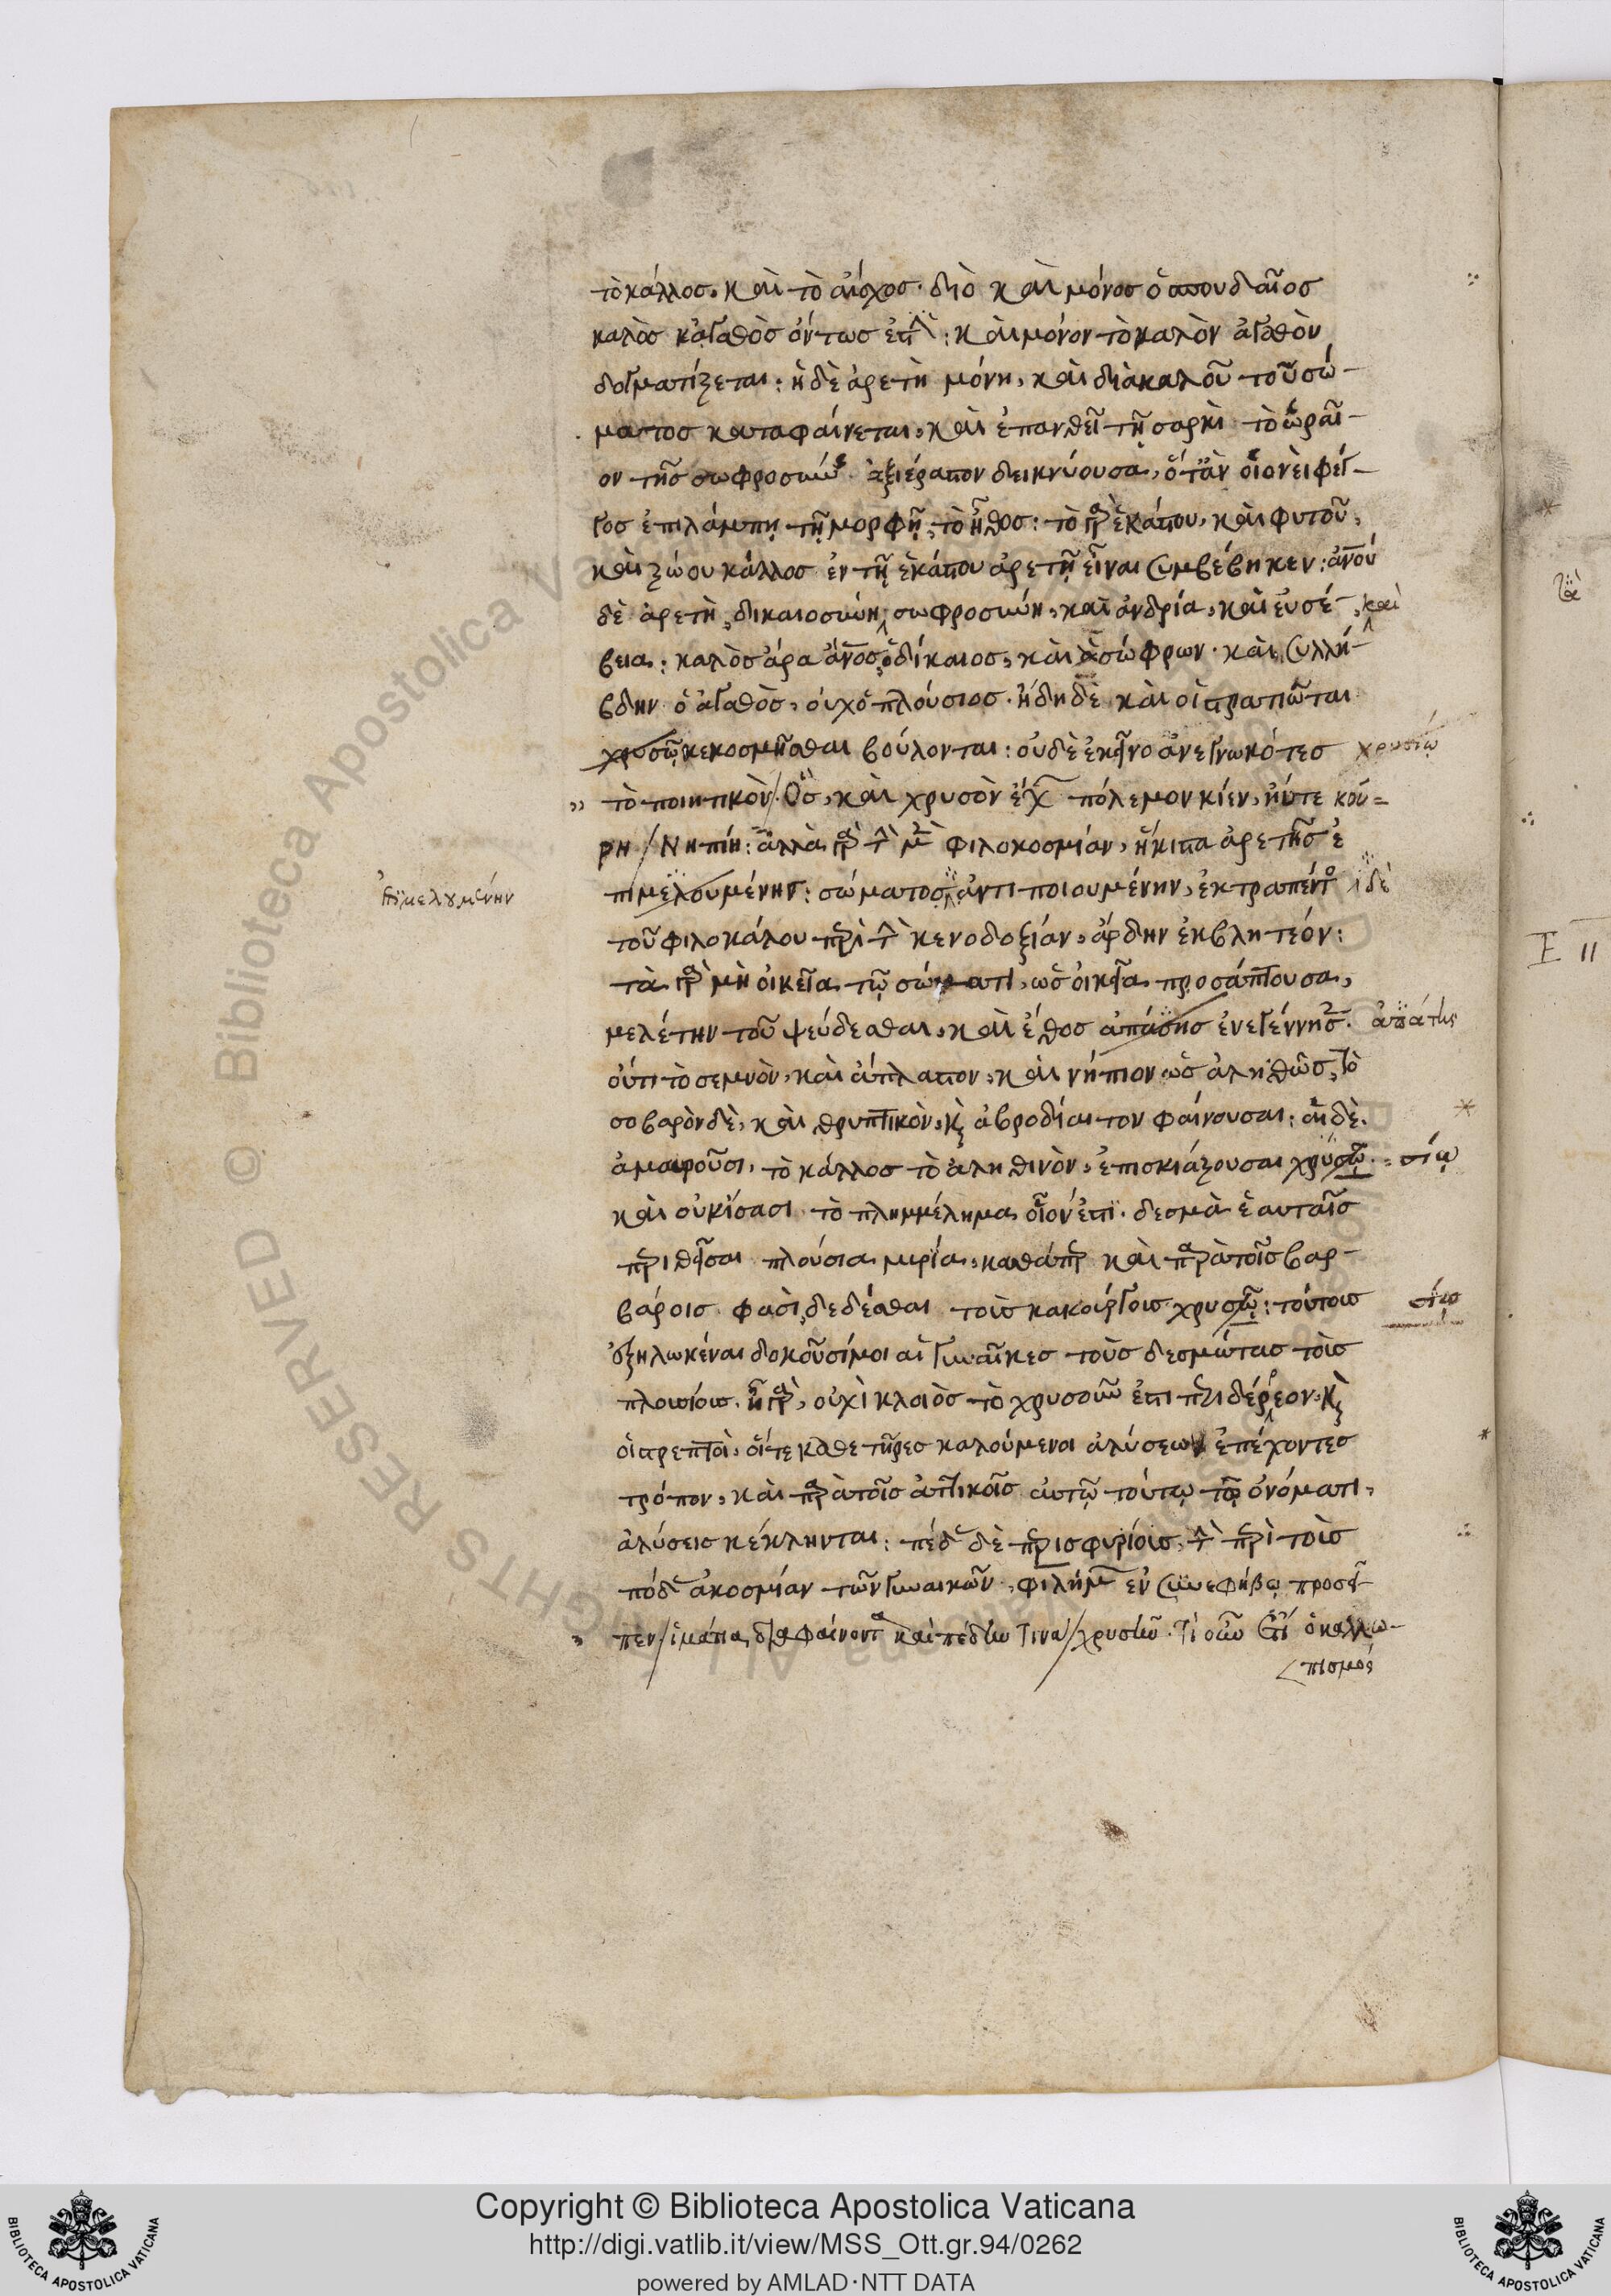 τὸ κάλλος, καὶ τὸ αἶσχος· διὸ καὶ μόνος ὁ σπουδαῖος
καλὸς κἀγαθὸς ὄντως ἐστὶ: καὶ μόνον τὸ καλὸν ἀγαθὸν
δογματίζεται: ἡ δὲ ἀρετὴ μόνη, καὶ διὰ καλοῦ τοῦ σώ-
ματος καταφαίνεται, καὶ ἐπανθεῖ τῇ σαρκὶ τὸ ὡραῖ-
ον τῆς σωφροσύνης ἀξιέραστον δεικνύουσα, ὅταν οἱονεὶ φέγ-
γος ἐπιλάμπῃ τῇ μορφῇ, τὸ ἦθος: τὸ γὰρ ἑκάστου, καὶ φυτοῦ,
καὶ ζώου κάλλος ἐν τῇ ἑκάστου ἀρετῇ εἶναι συμβέβηκεν: ἀνου
δὲ ἀρετὴ, δικαιοσύνη, σωφροσύνη, καὶ ἀνδρία, καὶ εὐσέ- καὶ
βεια: καλὸς ἄρα ἄνος ὁ δίκαιος, καὶ ὁ σώφρων· καὶ συλλή-
βδην ὁ ἀγαθὸς, οὐχ ὁ πλούσιος· ἤδη δὲ καὶ οἱ στρατιῶται
χρυσῷ κεκοσμῆσθαι βούλονται: οὐδὲ ἐκεῖνο ἀνεγνωκότες χρυσίῳ
" τὸ ποιητικὸν / Ὃς, καὶ χρυσὸν ἔχων πόλεμον κίεν, ἠΰτε κού-
ρη / Νηπίη: ἀλλὰ γὰρ τὴν μὲν φιλοκοσμίαν, ἥκιστα ἀρετῆς ἐ
πιμελουμένης: σώματος ἀντιποιουμένην, ἐκτραπέντος δὲ
ἐπιμελουμένην
τοῦ φιλοκάλου περὶ τὴν κενοδοξίαν, ἄρδην ἐκβλητέον:
τὰ γὰρ μὴ οἰκεῖα τῷ σώματι, ὡς οἰκεῖα προσάπτουσα,
μελέτην τοῦ ψεύδεσθαι, καὶ ἔθος ἁπάσης ἐνεγέννησεν· ἀπάτης
οὔτι τὸ σεμνὸν, καὶ ἄπλαστον, καὶ νήπιον ὡς ἀληθῶς, τὸ
σοβαρὸν δὲ, καὶ θρυπτικὸν, καὶ ἁβροδίαιτον φαίνουσαι: αἱ δὲ
ἀμαυροῦσι, τὸ κάλλος τὸ ἀληθινὸν, ἐπισκιάζουσαι χρυσῷ. σίῳ
καὶ οὐκ ἴσασι τὸ πλημμέλημα οἷόν ἐστι· δεσμὰ ἑαυταῖς
περιθεῖσαι πλούσια μυρία, καθάπερ καὶ παρὰ τοῖς βαρ-
βάροις φασὶ, δεδέσθαι τοὺς κακούργους χρυσῷ: τούτους σίῳ
ἐζηλωκέναι δοκοῦσί μοι αἱ γυναῖκες τοὺς δεσμώτας τοὺς
πλουσίους. ἢ γὰρ, οὐχὶ κλοιὸς τὸ χρυσοῦν ἐστι περιδέρρεον, καὶ
οἱ στρεπτοὶ, οἵ τε καθετῆρες καλούμενοι ἁλύσεων ἐπέχοντες
τρόπον, καὶ παρὰ τοῖς ἀττικοῖς αὐτῷ τούτῳ τῷ ὀνόματι,
ἁλύσεις κέκληνται: πέδας δὲ περισφυρίους, τὴν περὶ τοὺς
πόδας ἀκοσμίαν τῶν γυναικῶν, φιλήμων ἐν συνεφήβῳ προσεῖ-
" πεν / ἱμάτια διαφαίνοντα καὶ πέδην τινα / χρυσῆν. Τί οὖν ἐστι ὁ καλλω-
πισμός